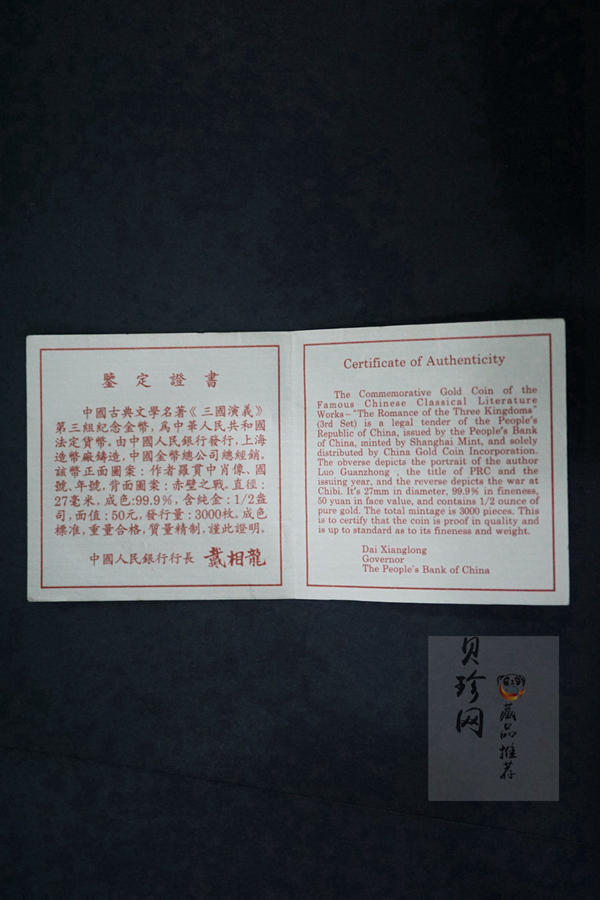 鑒定證書
中國古典文學名著《三國演義》
第三組紀念金幣，爲中華人民共和國
法定貨幣，由中國人民銀行發行，上海
造幣廠鑄造，中國金幣總公司總經銷。
該幣正面圖案：作者羅貫中肖像、國
號、年號，背面圖案：赤壁之戰，直徑：
27毫米，成色：99.9%，含純金：1/2盎
司，面值：50元，發行量：3000枚，成色
標准，重量合格，質量精制，謹此證明。
中國人民銀行行長 戴相龍
Certificate of Authenticity
The Commemorative Gold Coin of the
Famous Chinese Classical Literature
Works–"The Romance of the Three Kingdoms"
(3rd Set) is a legal tender of the People's
Republic of China, issued by the People's Bank
of China, minted by Shanghai Mint, and solely
distributed by China Gold Coin Incorporation.
The obverse depicts the portrait of the author
Luo Guanzhong , the title of PRC and the
issuing year, and the reverse depicts the war at
Chibi. It's 27mm in diameter, 99.9% in fineness,
50 yuan in face value, and contains 1/2 ounce of
pure gold. The total mintage is 3000 pieces. This
is to certify that the coin is proof in quality and
is up to standard as to its fineness and weight.
Dai Xianglong
Governor
The People's Bank of China
贝珍网
藏品推荐